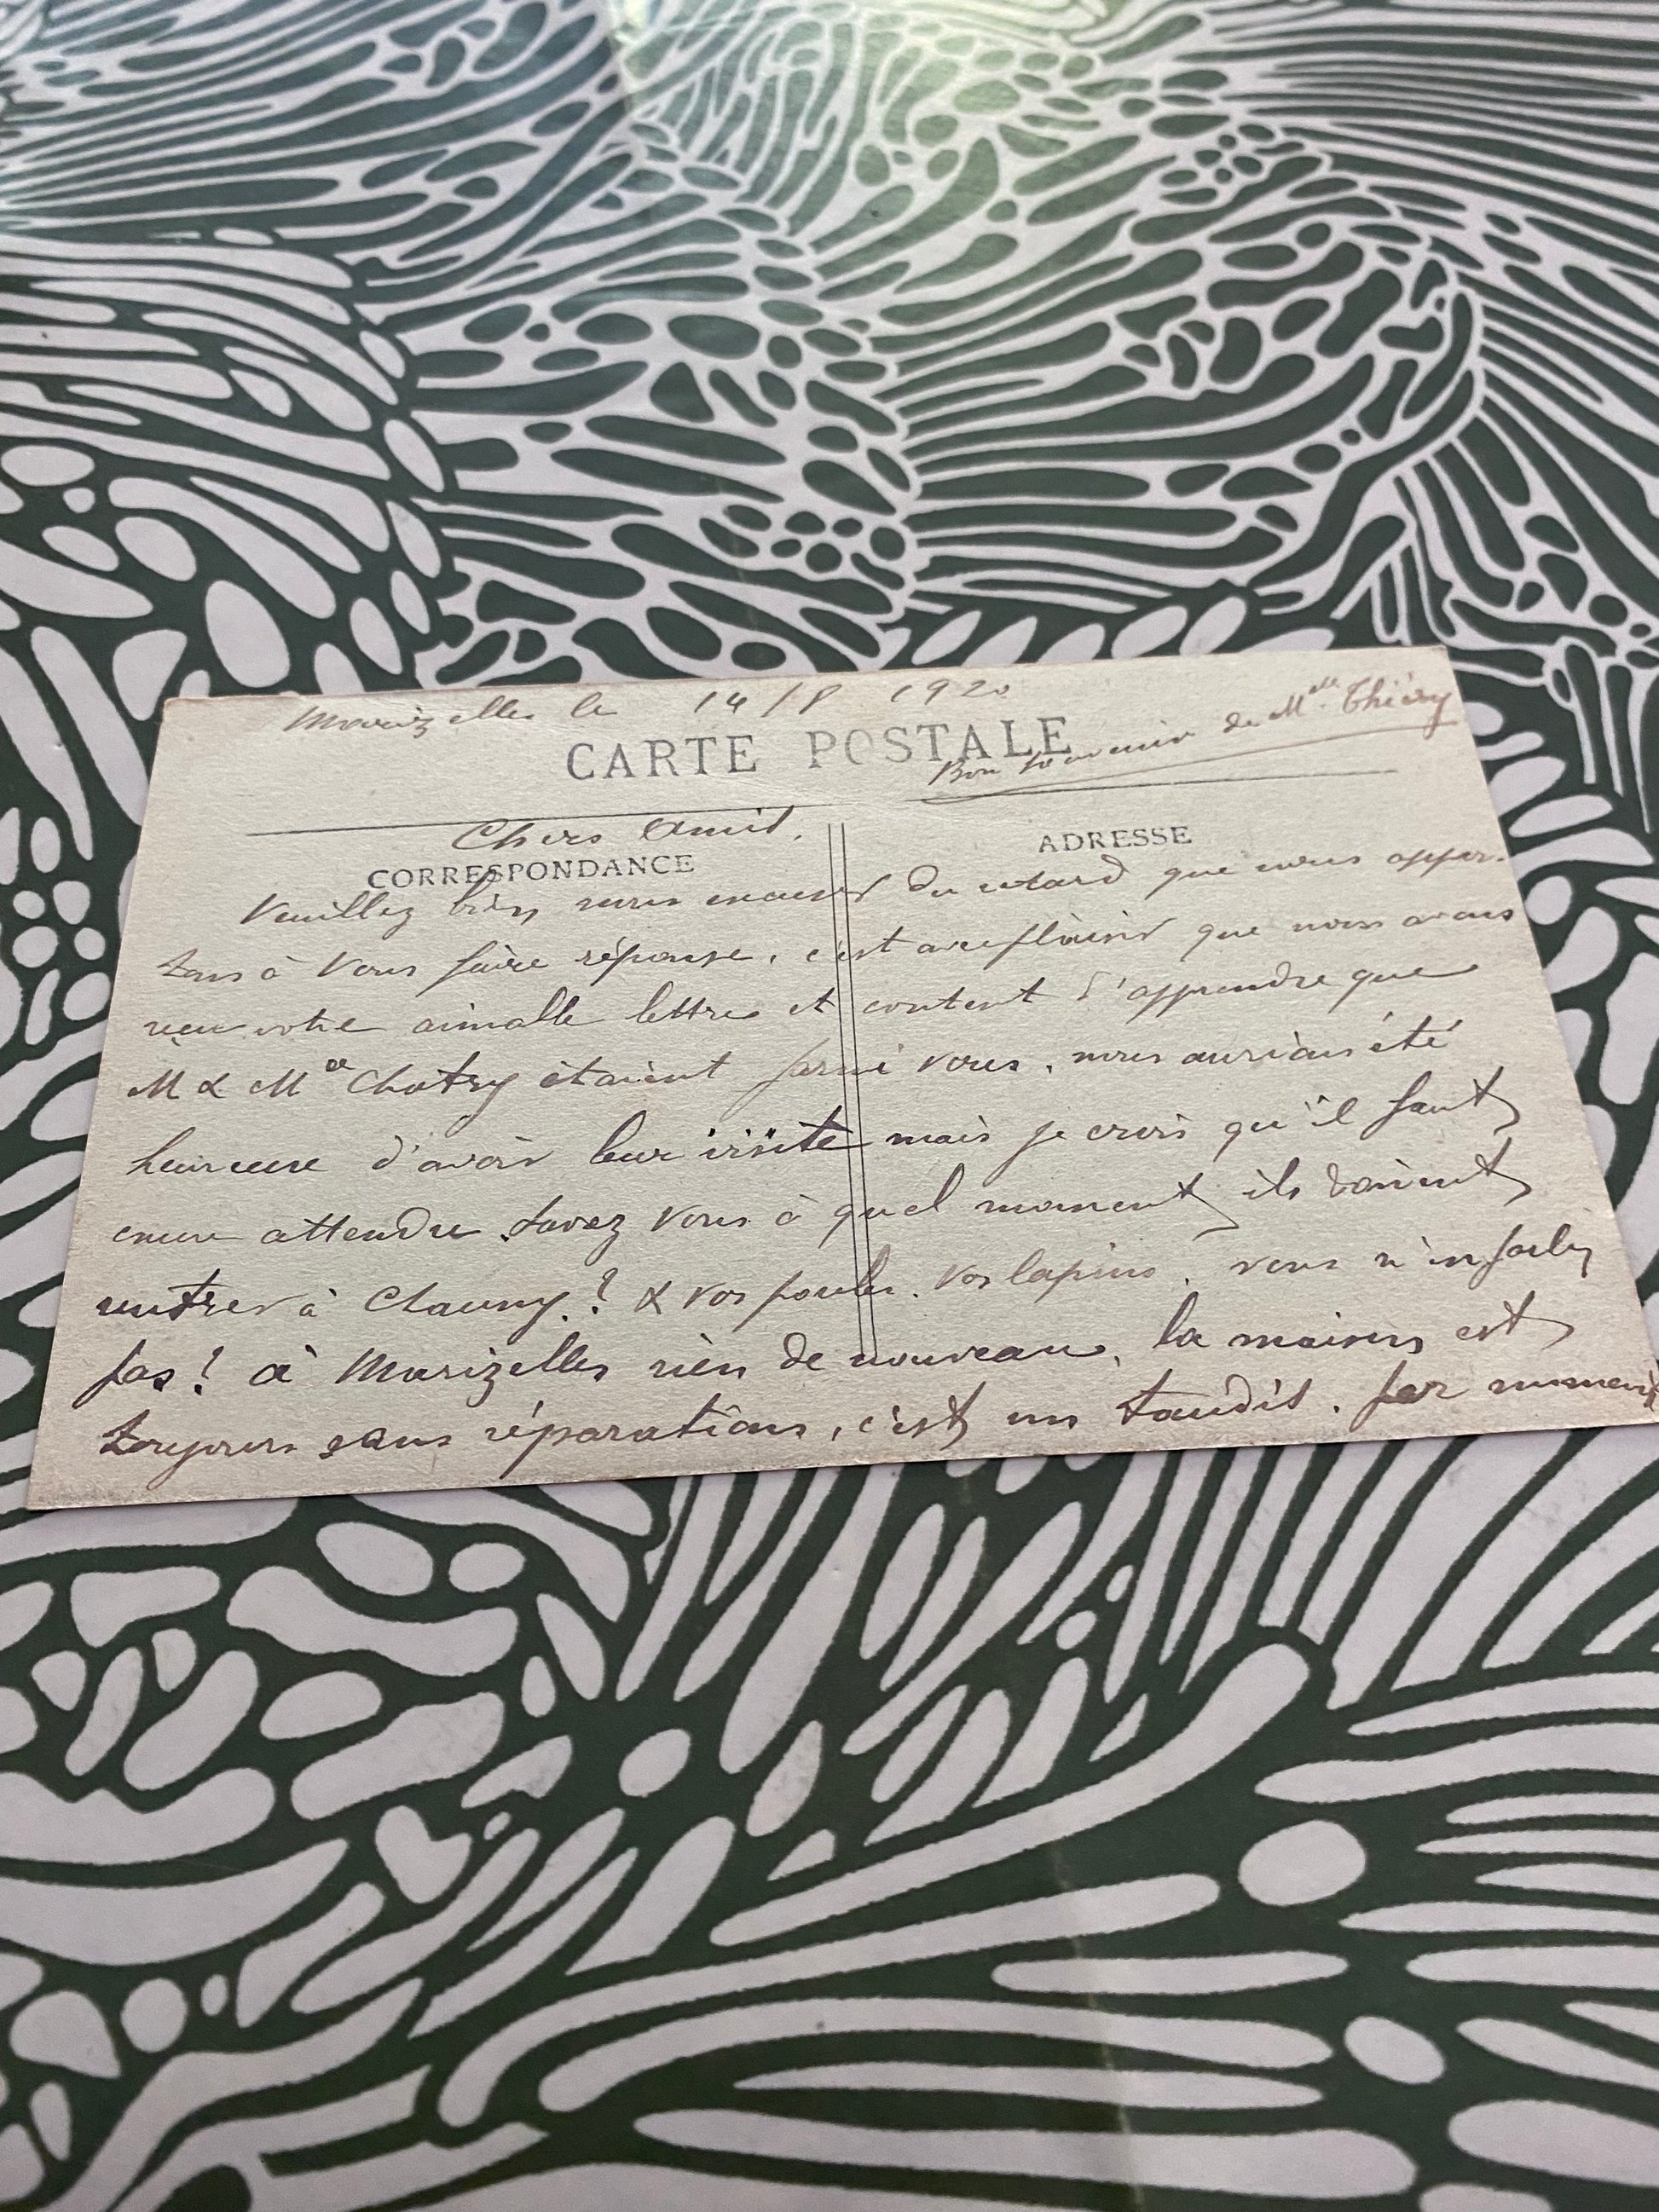 Marizelles le 14/8 1920
CARTE POSTALE
Bon souvenir de Melle Thiéry
Chers Amis,
CORRESPONDANCE
ADRESSE
Veuillez bien nous excuser du retard que nous appor-
tons à vous faire réponse, c'est avec plaisir que nous avons
reçu votre aimable lettre et content d'apprendre que
M & Me Chatry étaient parmi vous, nous aurions été
heureuse d'avoir leur visite mais je crois qu'il faut
encore attendre. Savez vous à quel moment ils doivent
rentrer à Chauny? & vos poules, vos lapins, vous n'en parlez
pas! à Marizelles rien de nouveau, la maison est
toujours sans réparations, c'est un taudis. par moment